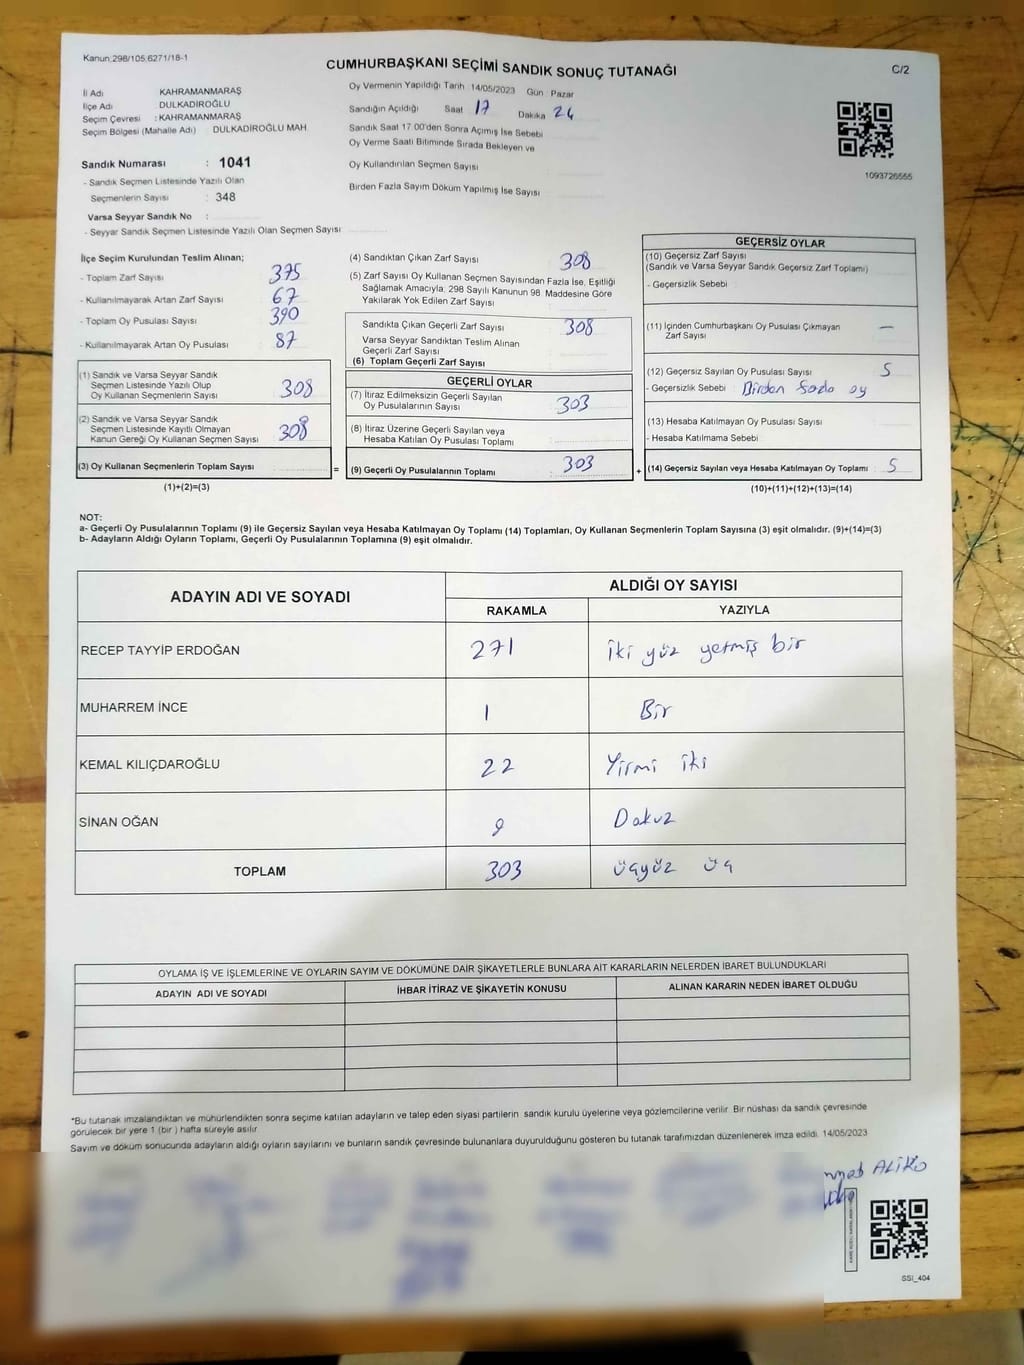 Kanun:298/105,6271/18-1
CUMHURBAŞKANI SEÇİMİ SANDIK SONUÇ TUTANAĞI
C/2
İl Adı KAHRAMANMARAŞ
İlçe Adı DULKADİROĞLU
Seçim Çevresi : KAHRAMANMARAŞ
Seçim Bölgesi (Mahalle Adı) : DULKADİROĞLU MAH.
Sandık Numarası : 1041
- Sandık Seçmen Listesinde Yazılı Olan
Seçmenlerin Sayısı : 348
Varsa Seyyar Sandık No :
- Seyyar Sandık Seçmen Listesinde Yazılı Olan Seçmen Sayısı
Oy Vermenin Yapıldığı Tarih 14/05/2023 Gün : Pazar
Sandığın Açıldığı Saat 17 Dakika 24
Sandık Saat 17.00'den Sonra Açımış İse Sebebi
Oy Verme Saati Bitiminde Sırada Bekleyen ve
Oy Kullandırılan Seçmen Sayısı
Birden Fazla Sayım Döküm Yapılmış İse Sayısı
1093726555
İlçe Seçim Kurulundan Teslim Alınan;
- Toplam Zarf Sayısı 375
- Kullanılmayarak Artan Zarf Sayısı 67
- Toplam Oy Pusulası Sayısı 390
- Kullanılmayarak Artan Oy Pusulası 87
(1) Sandık ve Varsa Seyyar Sandık
Seçmen Listesinde Yazılı Olup
Oy Kullanan Seçmenlerin Sayısı 308
(2) Sandık ve Varsa Seyyar Sandık
Seçmen Listesinde Kayıtlı Olmayan
Kanun Gereği Oy Kullanan Seçmen Sayısı 308
(3) Oy Kullanan Seçmenlerin Toplam Sayısı
(1)+(2)=(3)
=
(4) Sandıktan Çıkan Zarf Sayısı 308
(5) Zarf Sayısı Oy Kullanan Seçmen Sayısından Fazla İse, Eşitliği
Sağlamak Amacıyla; 298 Sayılı Kanunun 98. Maddesine Göre
Yakılarak Yok Edilen Zarf Sayısı
Sandıkta Çıkan Geçerli Zarf Sayısı 308
Varsa Seyyar Sandıktan Teslim Alınan
Geçerli Zarf Sayısı
(6) Toplam Geçerli Zarf Sayısı
GEÇERLİ OYLAR
(7) İtiraz Edilmeksizin Geçerli Sayılan
Oy Pusulalarının Sayısı 303
(8) İtiraz Üzerine Geçerli Sayılan veya
Hesaba Katılan Oy Pusulası Toplamı
(9) Geçerli Oy Pusulalarının Toplamı 303
+
GEÇERSİZ OYLAR
(10) Geçersiz Zarf Sayısı
(Sandık ve Varsa Seyyar Sandık Geçersiz Zarf Toplamı)
- Geçersizlik Sebebi
(11) İçinden Cumhurbaşkanı Oy Pusulası Çıkmayan
Zarf Sayısı —
(12) Geçersiz Sayılan Oy Pusulası Sayısı 5
- Geçersizlik Sebebi : Birden fazla oy
(13) Hesaba Katılmayan Oy Pusulası Sayısı
- Hesaba Katılmama Sebebi
(14) Geçersiz Sayılan veya Hesaba Katılmayan Oy Toplamı : 5
(10)+(11)+(12)+(13)=(14)
NOT:
a- Geçerli Oy Pusulalarının Toplamı (9) ile Geçersiz Sayılan veya Hesaba Katılmayan Oy Toplamı (14) Toplamları, Oy Kullanan Seçmenlerin Toplam Sayısına (3) eşit olmalıdır. (9)+(14)=(3)
b- Adayların Aldığı Oyların Toplamı, Geçerli Oy Pusulalarının Toplamına (9) eşit olmalıdır.
ADAYIN ADI VE SOYADI ALDIĞI OY SAYISI
RAKAMLA YAZIYLA
RECEP TAYYİP ERDOĞAN 271 iki yüz yetmiş bir
MUHARREM İNCE 1 Bir
KEMAL KILIÇDAROĞLU 22 Yirmi iki
SİNAN OĞAN 9 Dokuz
TOPLAM 303 üçyüz üç
OYLAMA İŞ VE İŞLEMLERİNE VE OYLARIN SAYIM VE DÖKÜMÜNE DAİR ŞİKAYETLERLE BUNLARA AİT KARARLARIN NELERDEN İBARET BULUNDUKLARI
ADAYIN ADI VE SOYADI İHBAR İTİRAZ VE ŞİKAYETİN KONUSU ALINAN KARARIN NEDEN İBARET OLDUĞU
*Bu tutanak imzalandıktan ve mühürlendikten sonra seçime katılan adayların ve talep eden siyasi partilerin sandık kurulu üyelerine veya gözlemcilerine verilir. Bir nüshası da sandık çevresinde
görülecek bir yere 1 (bir ) hafta süreyle asılır.
Sayım ve döküm sonucunda adayların aldığı oyların sayılarını ve bunların sandık çevresinde bulunanlara duyurulduğunu gösteren bu tutanak tarafımızdan düzenlenerek imza edildi. 14/05/2023
SSI_404